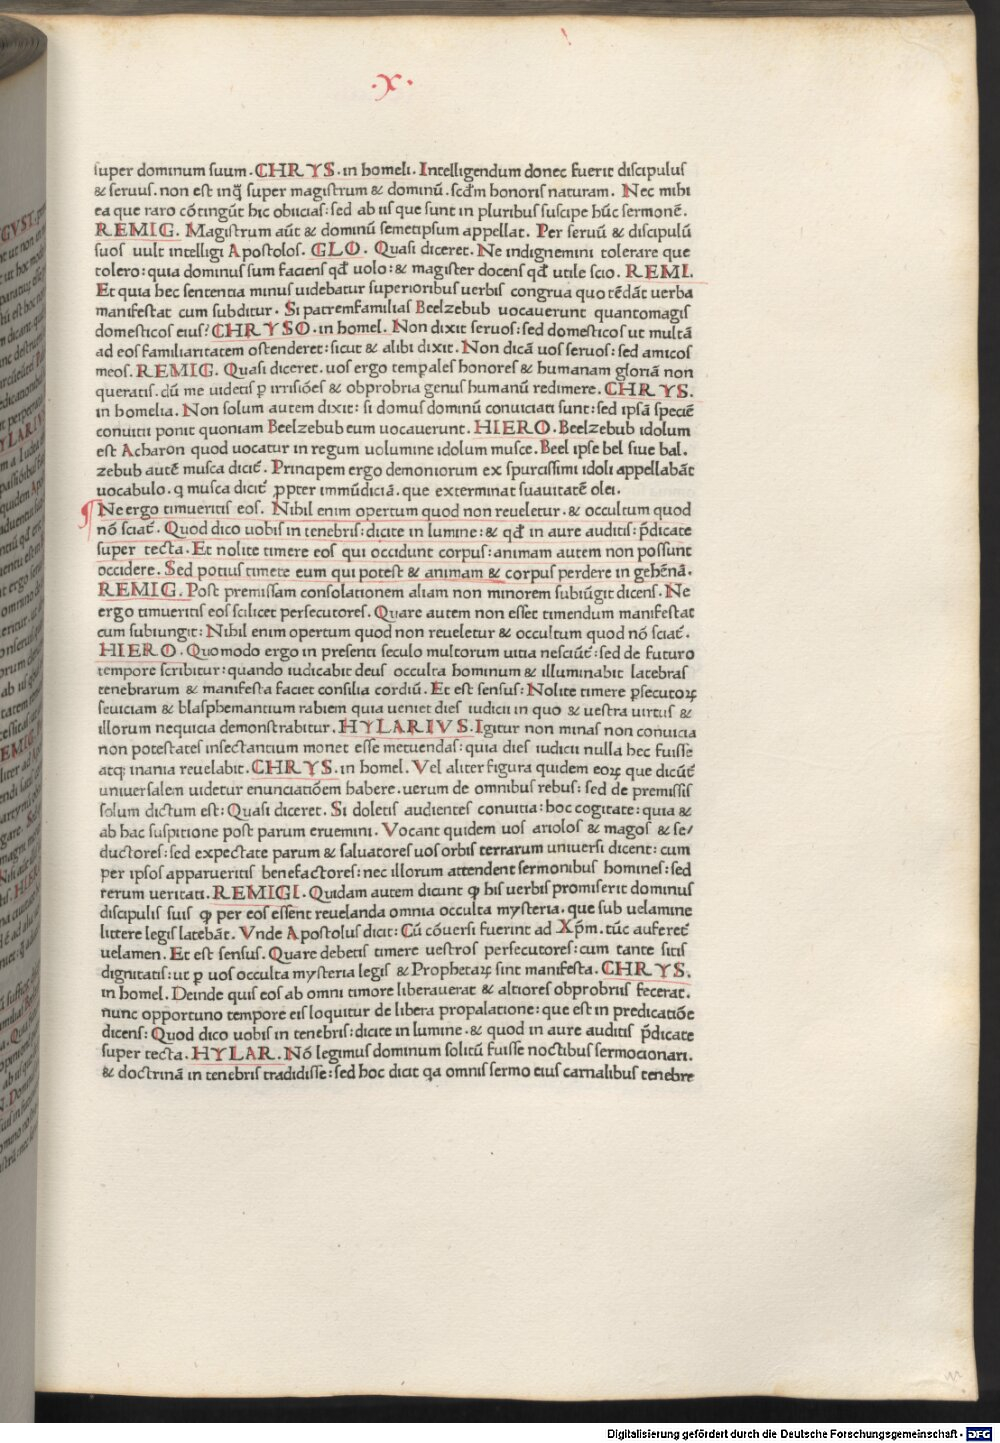 ·X·
super dominum suum. CHRYS. in homeli. Intelligendum donec fuerit discipulus
& seruus. non est inq̃ super magistrum & dominũ. scđm honoris naturam. Nec mihi
ea que raro cõtingũt hic obiicias: sed ab iis que sunt in pluribus suscipe hũc sermonẽ.
REMIG. Magistrum aũt & dominũ semetipsum appellat. Per seruũ & discipulũ
suos uult intelligi Apostolos. GLO. Quasi diceret. Ne indignemini tolerare que
tolero: quia dominus sum faciens qđ uolo: & magister docens qđ utile scio. REMI.
Et quia hec sententia minus uidebatur superioribus uerbis congrua quo tẽdãt uerba
manifestat cum subditur. Si patremfamilias Beelzebub uocauerunt quantomagis
domesticos eius? CHRYSO. in homel. Non dixit seruos: sed domesticos ut multã
ad eos familiaritatem ostenderet: sicut & alibi dixit. Non dicã uos seruos: sed amicos
meos. REMIG. Quasi diceret. uos ergo tempales honores & humanam gloriã non
queratis. dũ me uidetis ꝑ irrisiões & obprobria genus humanũ redimere. CHRYS.
in homelia. Non solum autem dixit: si domus dominũ conuiciati sunt: sed ipsã speciẽ
conuitii ponit quoniam Beelzebub eum uocauerunt. HIERO. Beelzebub idolum
est Acharon quod uocatur in regum uolumine idolum musce. Beel ipse bel siue bal.
zebub autẽ musca dicit̃. Principem ergo demoniorum ex spurcissimi idoli appellabãt
uocabulo. q musca dicit̃ ꝓpter immũdiciã. que exterminat suauitatẽ olei.
¶ Ne ergo timueritis eos. Nihil enim opertum quod non reueletur. & occultum quod
nõ sciat̃. Quod dico uobis in tenebris: dicite in lumine: & qđ in aure auditis: p̃dicate
super tecta. Et nolite timere eos qui occidunt corpus: animam autem non possunt
occidere. Sed potius timete eum qui potest & animam & corpus perdere in gehẽnã.
REMIG. Post premissam consolationem aliam non minorem subiũgit dicens. Ne
ergo timueritis eos scilicet persecutores. Quare autem non esset timendum manifestat
cum subiungit: Nihil enim opertum quod non reueletur & occultum quod nõ sciat̃.
HIERO. Quomodo ergo in presenti seculo multorum uitia nesciũt̃: sed de futuro
tempore scribitur: quando iudicabit deus occulta hominum & illuminabit latebras
tenebrarum & manifesta faciet consilia cordiũ. Et est sensus: Nolite timere ꝑsecutoꝝ
seuiciam & blasphemantium rabiem quia ueniet dies iudicii in quo & uestra uirtus &
illorum nequicia demonstrabitur. HYLARIVS. Igitur non minas non conuicia
non potestates insectantium monet esse metuendas: quia dies iudicii nulla hec fuisse
atq; inania reuelabit. CHRYS. in homel. Vel aliter figura quidem eoꝝ que dicũt̃
uniuersalem uidetur enunciatiõem habere. uerum de omnibus rebus: sed de premissis
solum dictum est: Quasi diceret. Si doletis audientes conuitia: hoc cogitate: quia &
ab hac suspitione post parum eruemini. Vocant quidem uos ariolos & magos & se/
ductores: sed expectate parum & saluatores uos orbis terrarum uniuersi dicent: cum
per ipsos apparueritis benefactores: nec illorum attendent sermonibus homines: sed
rerum ueritati. REMIGI. Quidam autem dicunt ꝙ his uerbis promiserit dominus
discipulis suis ꝙ per eos essent reuelanda omnia occulta mysteria. que sub uelamine
littere legis latebãt. Vnde Apostolus dicit: Cũ cõuersi fuerint ad Xp̃m. tũc auferet̃
uelamen. Et est sensus. Quare debetis timere uestros persecutores: cum tante sitis
dignitatis: ut ꝑ uos occulta mysteria legis & Prophetaꝝ sint manifesta. CHRYS.
in homel. Deinde quis eos ab omni timore liberauerat & altiores obprobriis fecerat.
nunc opportuno tempore eis loquitur de libera propalatione: que est in predicatiõe
dicens: Quod dico uobis in tenebris: dicite in lumine. & quod in aure auditis p̃dicate
super tecta. HYLAR. Nõ legimus dominum solitũ fuisse noctibus sermocionari.
& doctrinã in tenebris tradidisse: sed hoc dicit qa omnis sermo eius carnalibus tenebre
Digitalisierung gefördert durch die Deutsche Forschungsgemeinschaft - DFG